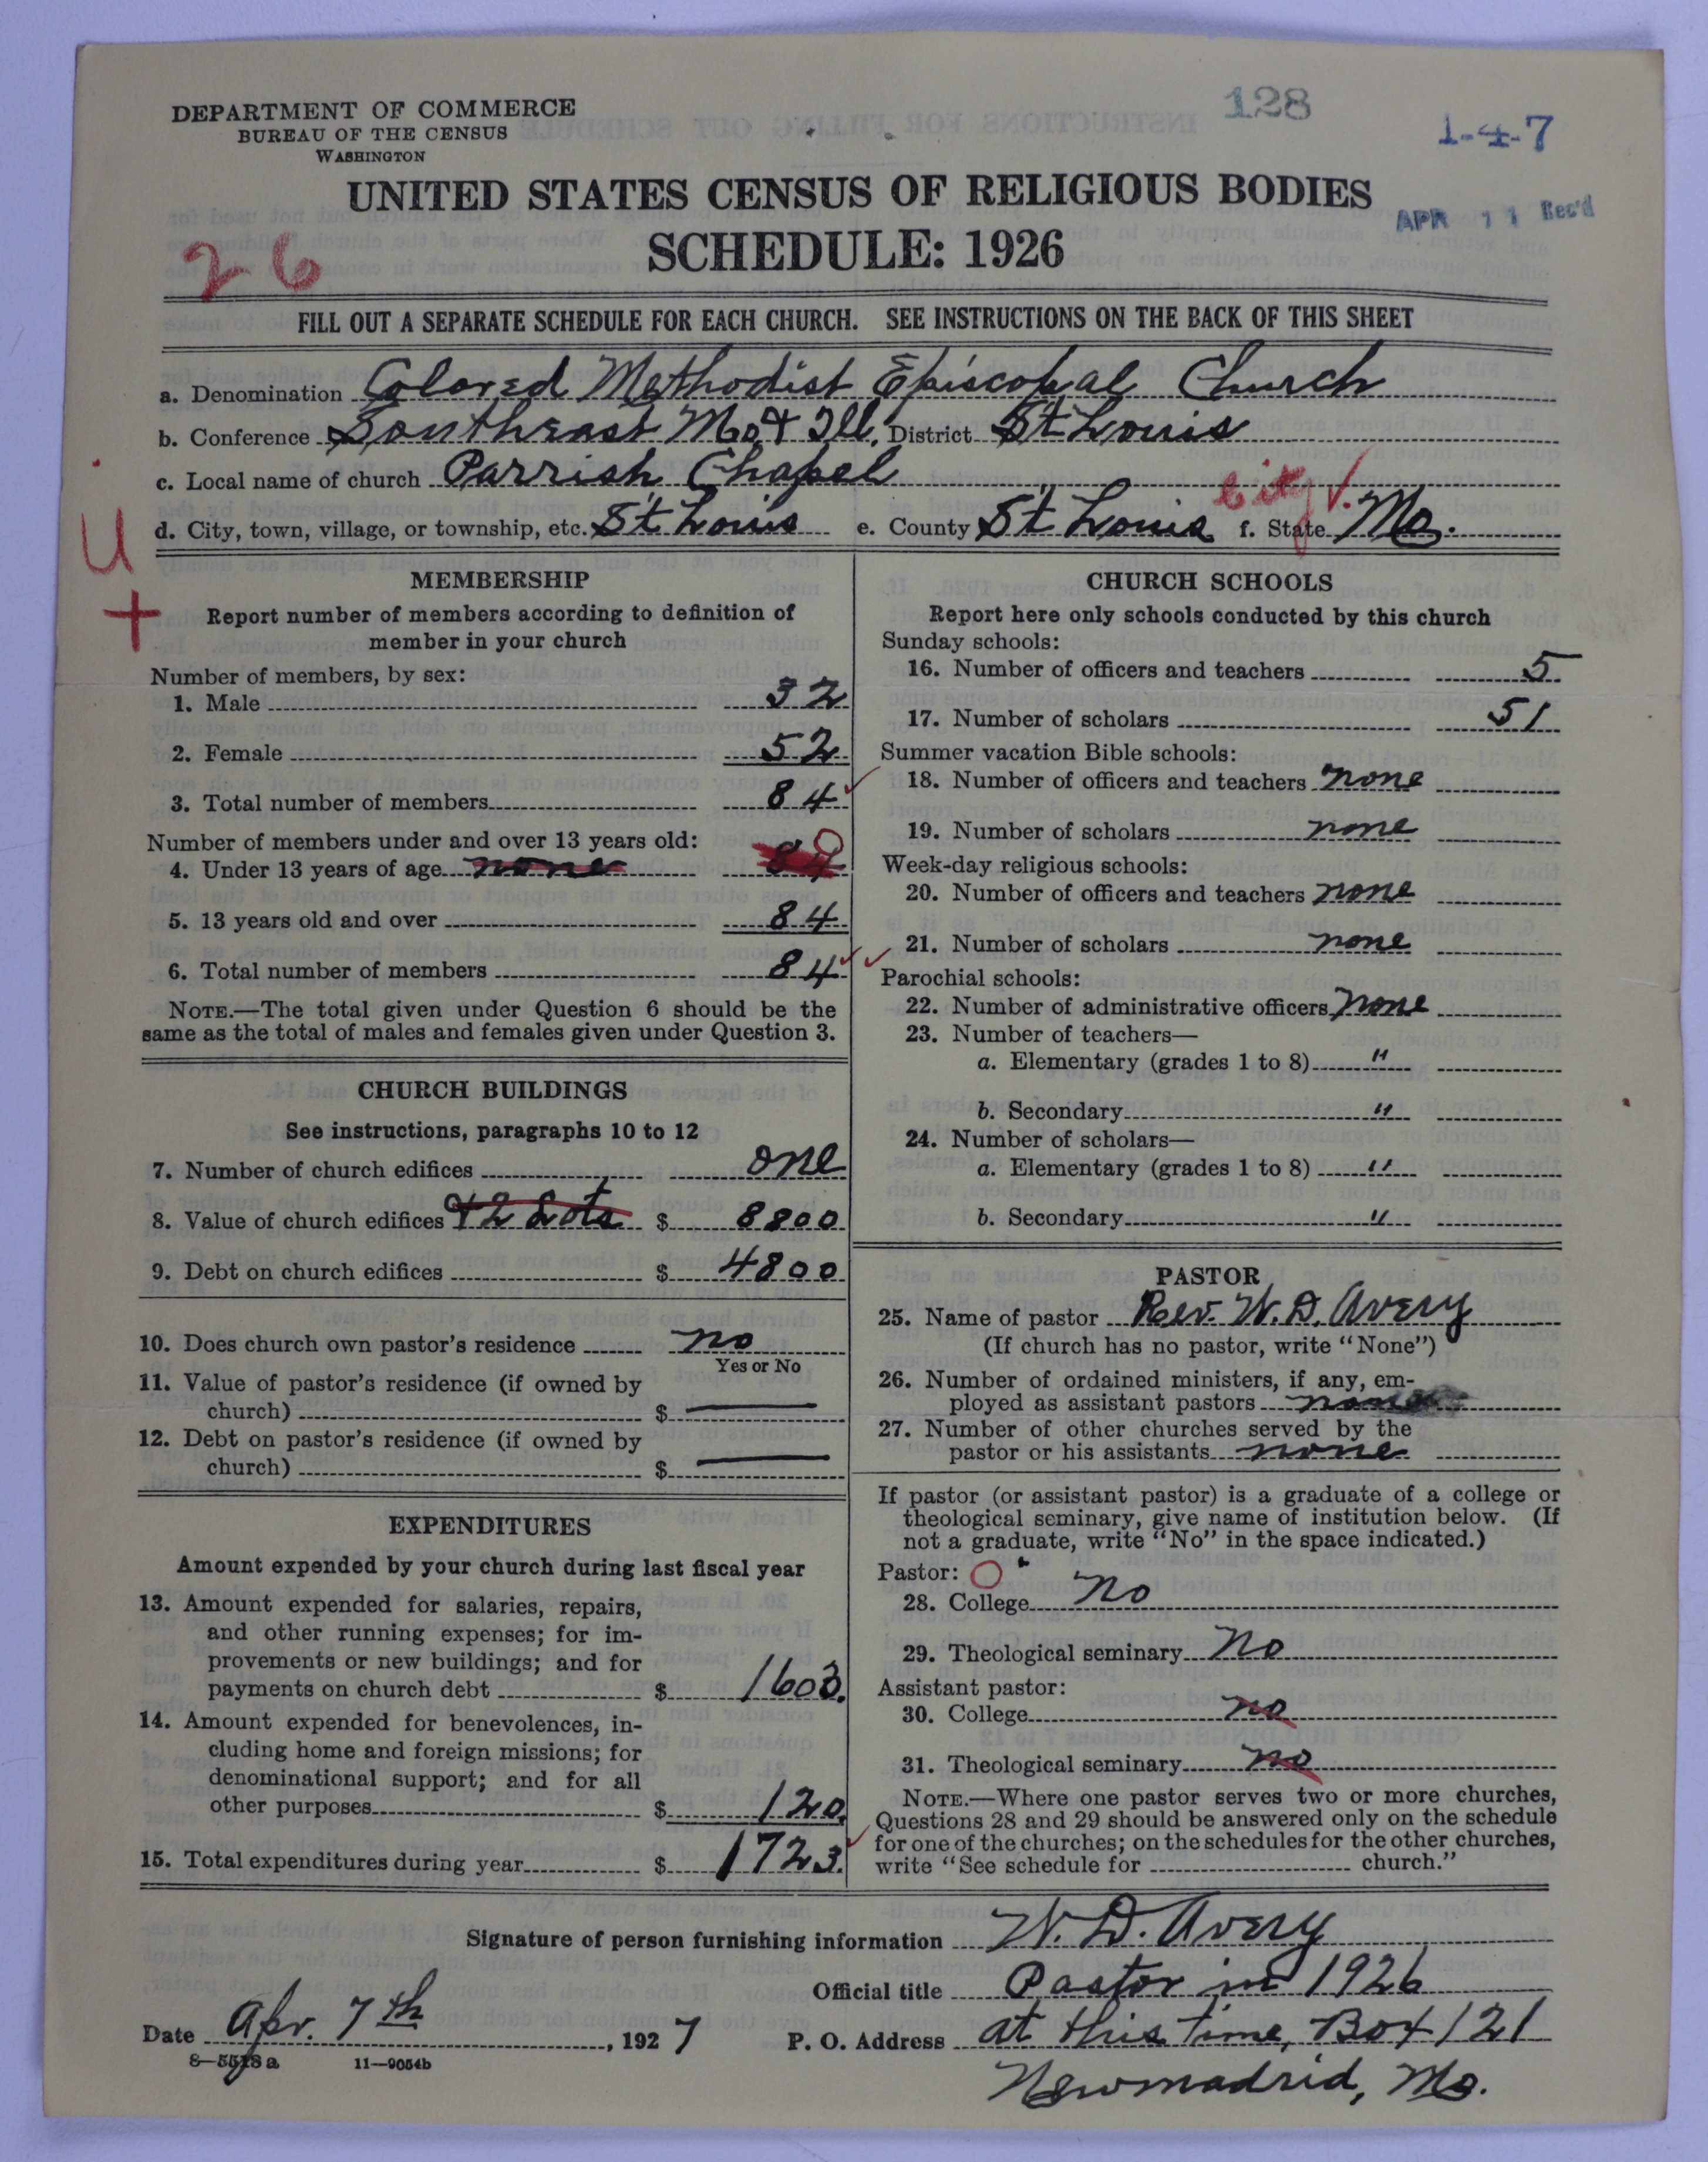 DEPARTMENT OF COMMERCE
BUREAU OF THE CENSUS
WASHINGTON
128
1-4-7
UNITED STATES CENSUS OF RELIGIOUS BODIES
APR 11 Rec'd
SCHEDULE: 1926
26
FILL OUT A SEPARATE SCHEDULE FOR EACH CHURCH. SEE INSTRUCTIONS ON THE BACK OF THIS SHEET
a. Denomination Colored Methodist Episcopal Church
b. Conference Southeast Mo. & Ill. District St Louis
c. Local name of church Parrish Chapel
city
d. City, town, village, or township, etc. St. Louis e. County St Louis f. State Mo.
U
+
MEMBERSHIP
Report number of members according to definition of
member in your church
Number of members, by sex:
1. Male 32
2. Female 52
3. Total number of members 84
Number of members under and over 13 years old:
4. Under 13 years of age none 84 0
5. 13 years old and over 84
6. Total number of members 84
NOTE.—The total given under Question 6 should be the
same as the total of males and females given under Question 3.
CHURCH BUILDINGS
See instructions, paragraphs 10 to 12
7. Number of church edifices one
8. Value of church edifices & 2 Lots $ 8800
9. Debt on church edifices $ 4800
10. Does church own pastor's residence no
Yes or No
11. Value of pastor's residence (if owned by
church) $ —
12. Debt on pastor's residence (if owned by
church) $ —
EXPENDITURES
Amount expended by your church during last fiscal year
13. Amount expended for salaries, repairs,
and other running expenses; for im-
provements or new buildings; and for
payments on church debt $ 1603.
14. Amount expended for benevolences, in-
cluding home and foreign missions; for
denominational support; and for all
other purposes $ 120.
15. Total expenditures during year $ 1723.
CHURCH SCHOOLS
Report here only schools conducted by this church
Sunday schools:
16. Number of officers and teachers 5
17. Number of scholars 51
Summer vacation Bible schools:
18. Number of officers and teachers none
19. Number of scholars none
Week-day religious schools:
20. Number of officers and teachers none
21. Number of scholars none
Parochial schools:
22. Number of administrative officers none
23. Number of teachers—
a. Elementary (grades 1 to 8) "
b. Secondary "
24. Number of scholars—
a. Elementary (grades 1 to 8) "
b. Secondary "
PASTOR
25. Name of pastor Rev. W. D. Avery
(If church has no pastor, write "None")
26. Number of ordained ministers, if any, em-
ployed as assistant pastors none
27. Number of other churches served by the
pastor or his assistants none
If pastor (or assistant pastor) is a graduate of a college or
theological seminary, give name of institution below. (If
not a graduate, write "No" in the space indicated.)
Pastor: O
28. College No
29. Theological seminary No
Assistant pastor:
30. College no
31. Theological seminary no
NOTE.—Where one pastor serves two or more churches,
Questions 28 and 29 should be answered only on the schedule
for one of the churches; on the schedules for the other churches,
write "See schedule for church."
Signature of person furnishing information W. D. Avery
Official title Pastor in 1926
Date Apr. 7th, 1927 P. O. Address at this time, Box 121
8—5518 a 11—9054b
Newmadrid, Mo.